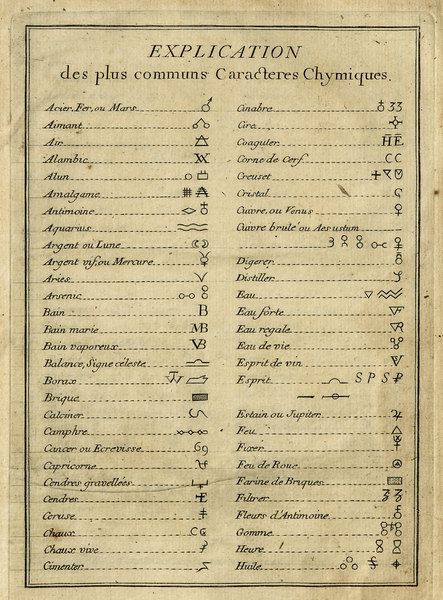 EXPLICATION
des plus communs Caracteres Chymiques.
Acier, Fer, ou Mars
Aimant
Air
Alambic
Alun
Amalgame
Antimoine
Aquarius
Argent ou Lune
Argent vif, ou Mercure
Aries
Arsenic
Bain B
Bain marie MB
Bain vaporeux VB
Balance, Signe céleste
Borax
Brique
Calciner
Camphre
Cancer ou Ecrevisse
Capricorne
Cendres gravellées
Cendres
Ceruse
Chaux
Chaux vive
Cimenter
Cinabre
Cire
Coaguler
Corne de Cerf CC
Creuset
Cristal
Cuivre, ou Venus
Cuivre brulé ou Aes ustum
Digerer
Distiller
Eau
Eau forte
Eau regale
Eau de vie
Esprit de vin
Esprit
Estain ou Jupiter
Feu
Fixer
Feu de Roue
Farine de Briques
Filtrer
Fleurs d'Antimoine
Gomme
Heure
Huile